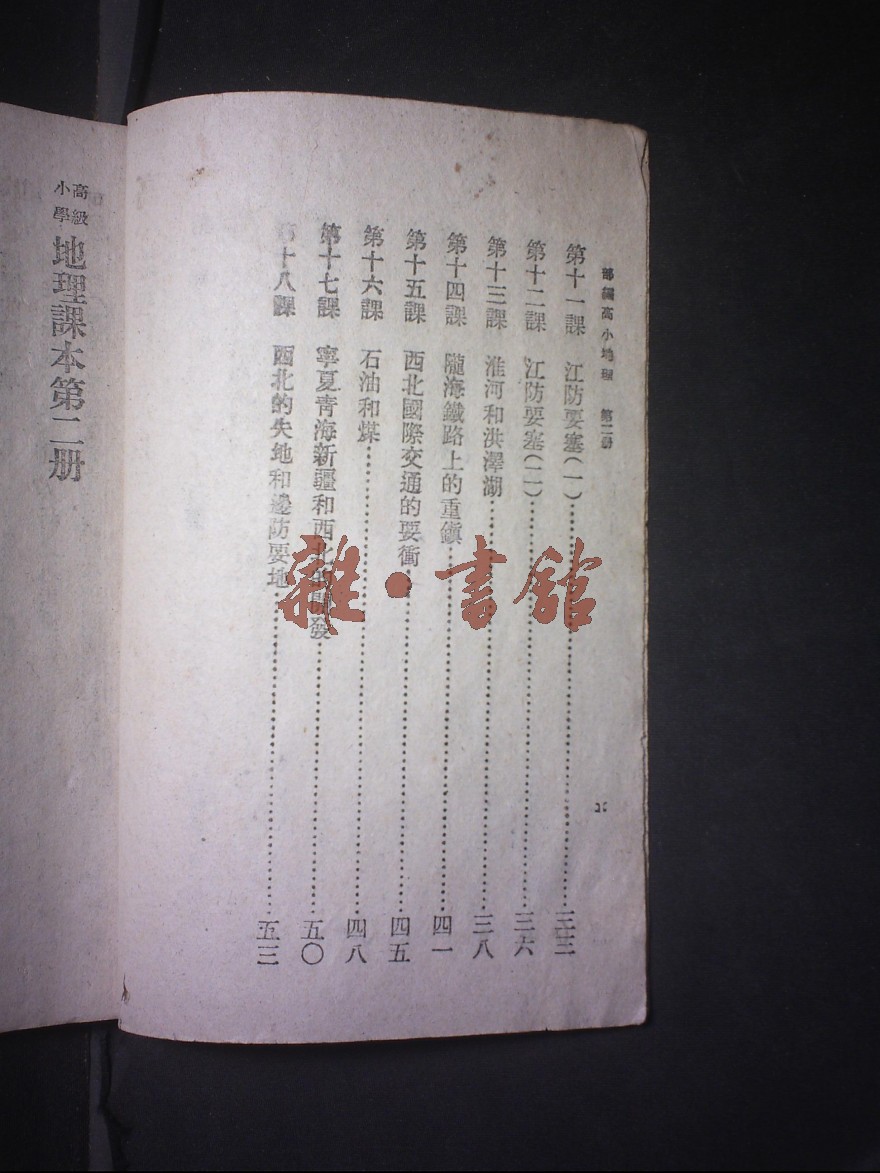 部編高小地理　第二册
第十一課　江防要塞(一)…………三三
第十二課　江防要塞(二)…………三六
第十三課　淮河和洪澤湖…………三八
第十四課　隴海鐵路上的重鎮…………四一
第十五課　西北國際交通的要衝…………四五
第十六課　石油和煤…………四八
第十七課　寧夏青海新疆和西北的開發…………五〇
第十八課　西北的失地和邊防要地…………五三
高級小學 地理課本第二册
雜·書館